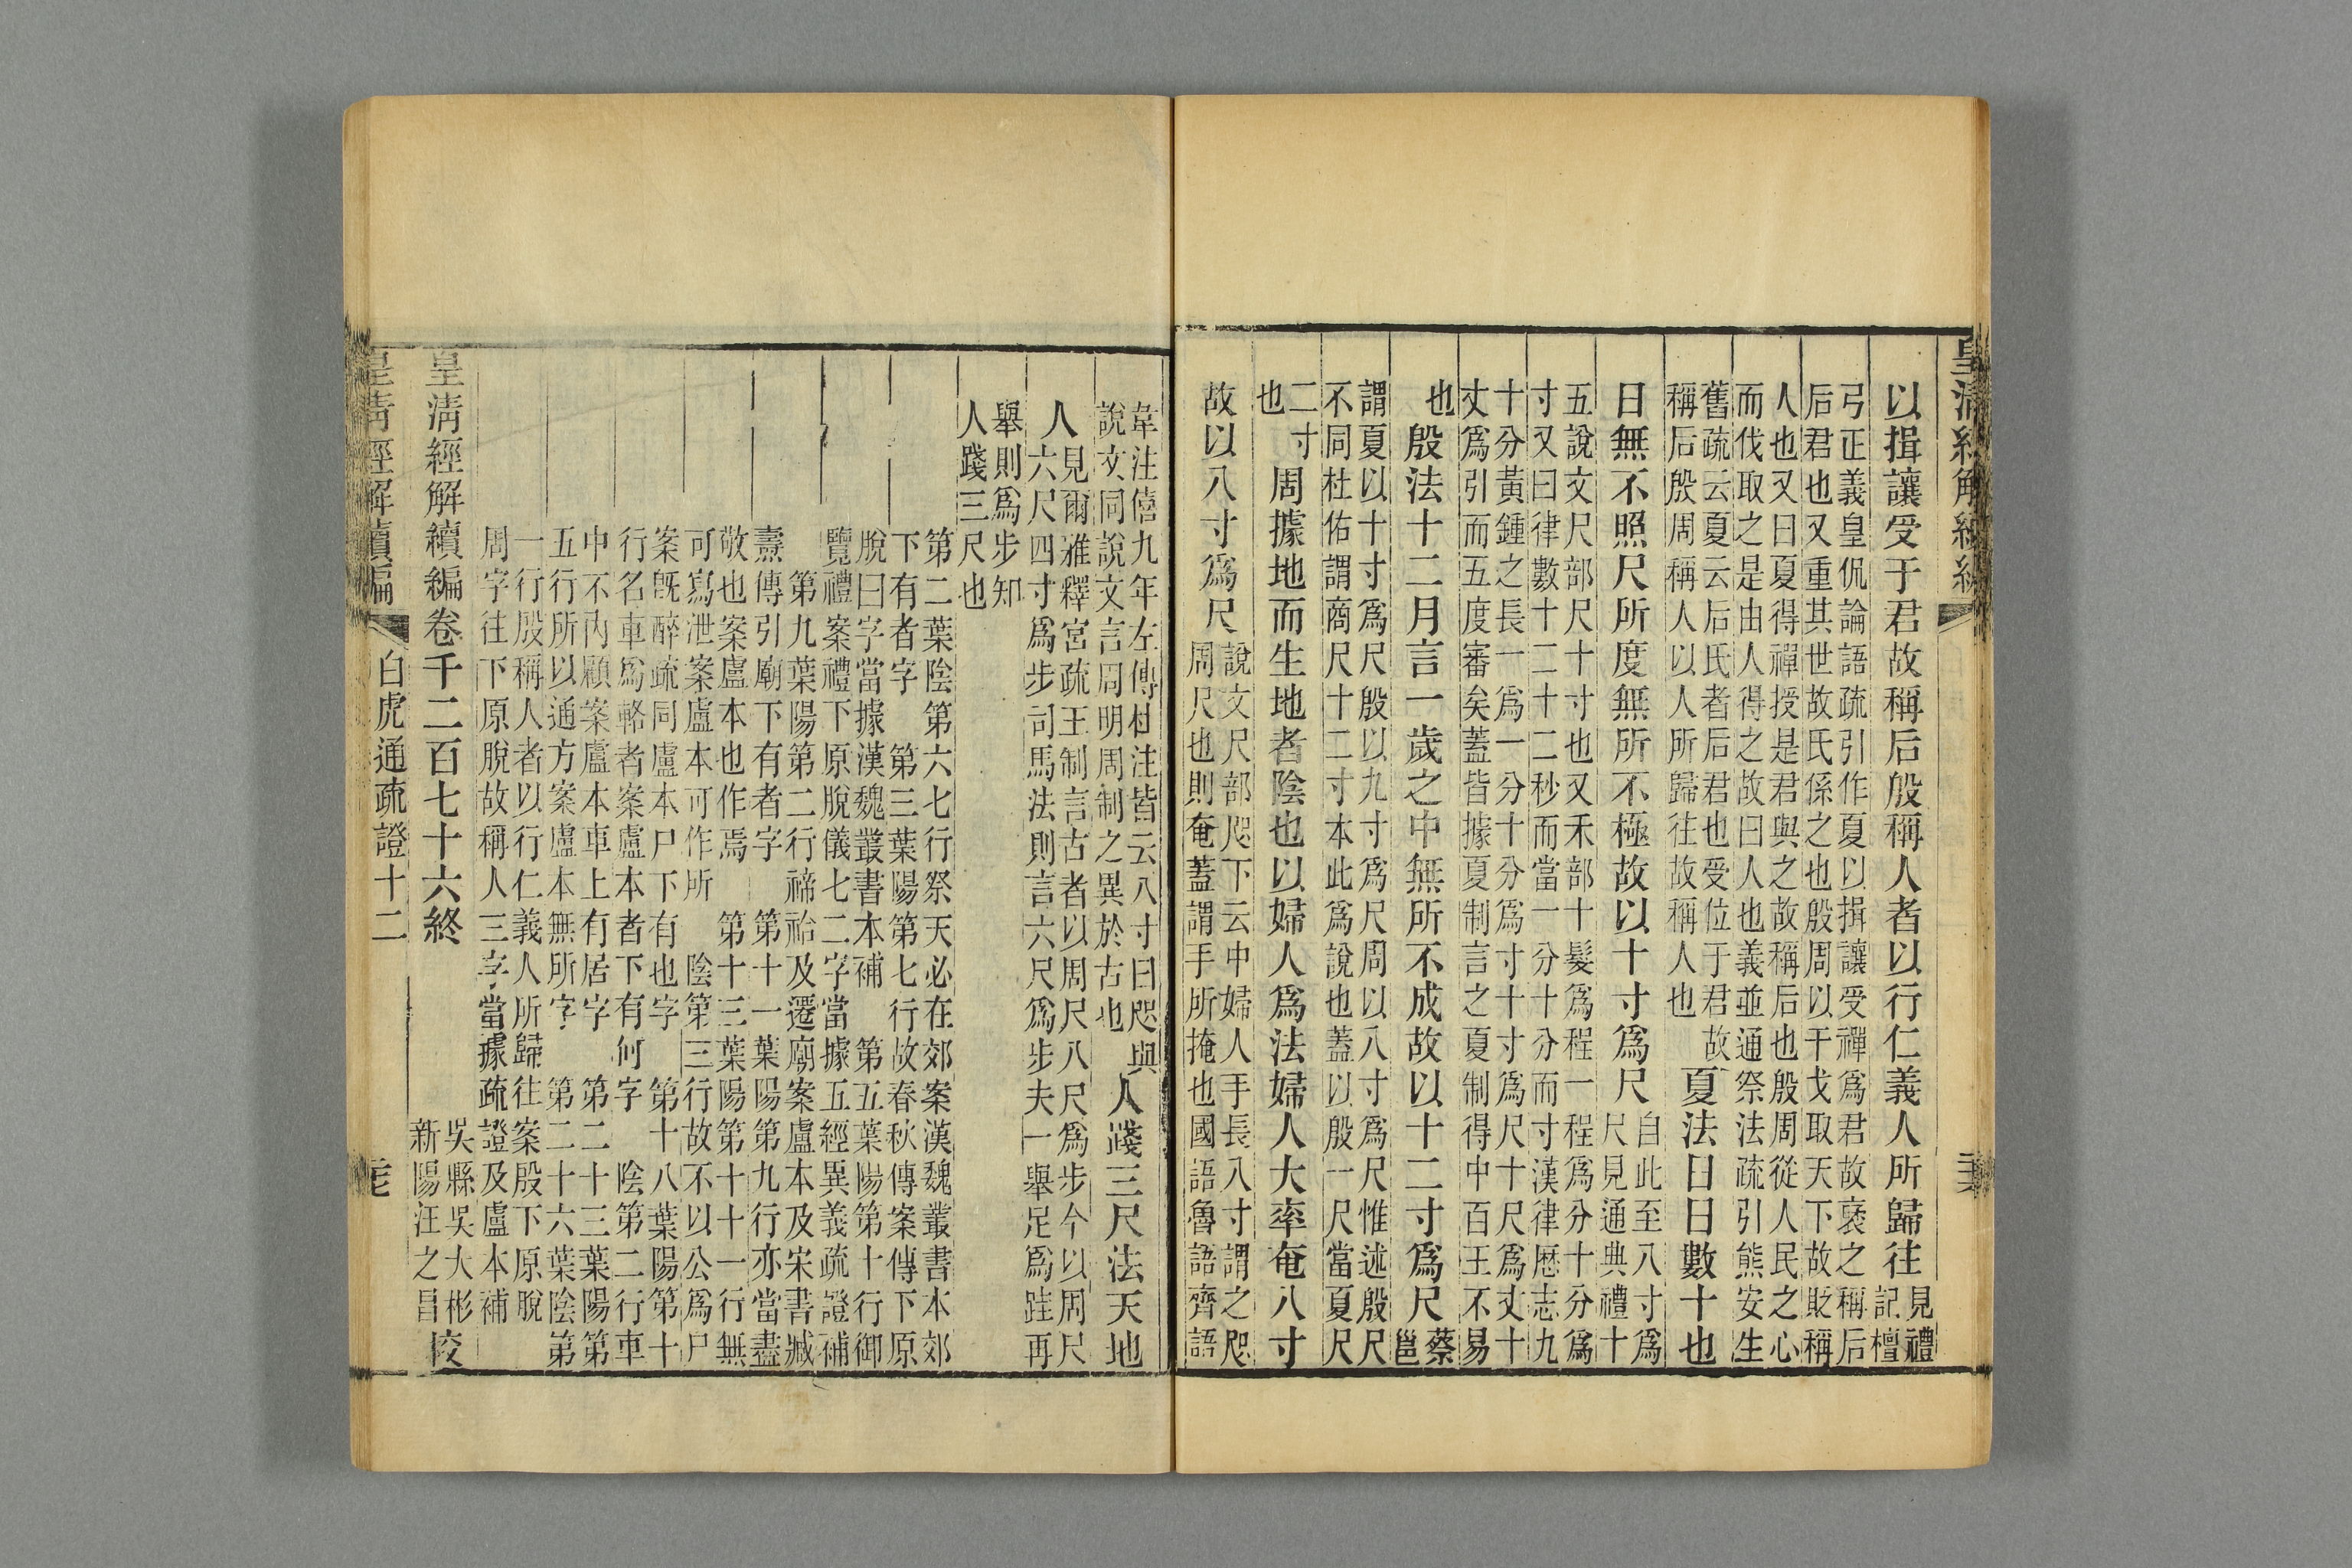 皇清經解續編
以揖讓受于君故稱后殷稱人者以行仁義人所歸往
見禮
記檀
弓正義皇侃論語疏引作夏以揖讓受禪爲君故褒之稱后
后君也又重其世故氏係之也殷周以干戈取天下故貶稱
人也又曰夏得禪授是君與之故稱后也殷周從人民之心
而伐取之是由人得之故曰人也義並通祭法疏引熊安生
舊疏云夏云后氏者后君也受位于君故
稱后殷周稱人以人所歸往故稱人也
夏法日日數十也
日無不照尺所度無所不極故以十寸爲尺
自此至八寸爲
尺見通典禮十
五說文尺部尺十寸也又禾部十髮爲程一程爲分十分爲
寸又曰律數十二十二秒而當一分十分而寸漢律厤志九
十分黃鍾之長一爲一分十分爲寸十寸爲尺十尺爲丈十
丈爲引而五度審矣蓋皆據夏制言之夏制得中百王不易
也
殷法十二月言一歲之中無所不成故以十二寸爲尺
蔡
邕
謂夏以十寸爲尺殷以九寸爲尺周以八寸爲尺惟述殷尺
不同杜佑謂商尺十二寸本此爲說也蓋以殷一尺當夏尺
二寸
也
周據地而生地者陰也以婦人爲法婦人大率奄八寸
故以八寸爲尺
說文尺部咫下云中婦人手長八寸謂之咫
周尺也則奄蓋謂手所掩也國語魯語齊語
韋注僖九年左傳杜注皆云八寸曰咫與
說文同說文言周明周制之異於古也
人踐三尺法天地
人
見爾雅釋宮疏王制言古者以周尺八尺爲步今以周尺
六尺四寸爲步司馬法則言六尺爲步夫一舉足爲跬再
舉則爲步知
人踐三尺也
第二葉陰第六七行祭天必在郊案漢魏叢書本郊
下有者字 第三葉陽第七行故春秋傳案傳下原
脫曰字當據漢魏叢書本補 第五葉陽第十行御
覽禮案禮下原脫儀七二字當據五經異義疏證補
第九葉陽第二行禘祫及遷廟案盧本及宋書臧
燾傳引廟下有者字 第十一葉陽第九行亦當盡
敬也案盧本也作焉 第十三葉陽第十十一行無
可寫泄案盧本可作所 陰第三行故不以公爲尸
案旣醉疏同盧本尸下有也字 第十八葉陽第十
行名車爲輅者案盧本者下有何字 陰第二行車
中不內顧案盧本車上有居字 第二十三葉陽第
五行所以通方案盧本無所字 第二十六葉陰第
一行殷稱人者以行仁義人所歸往案殷下原脫
周字往下原脫故稱人三字當據疏證及盧本補
皇清經解續編卷千二百七十六終
吳縣吳大彬
新陽汪之昌
校
皇清經解續編 白虎通疏證十二